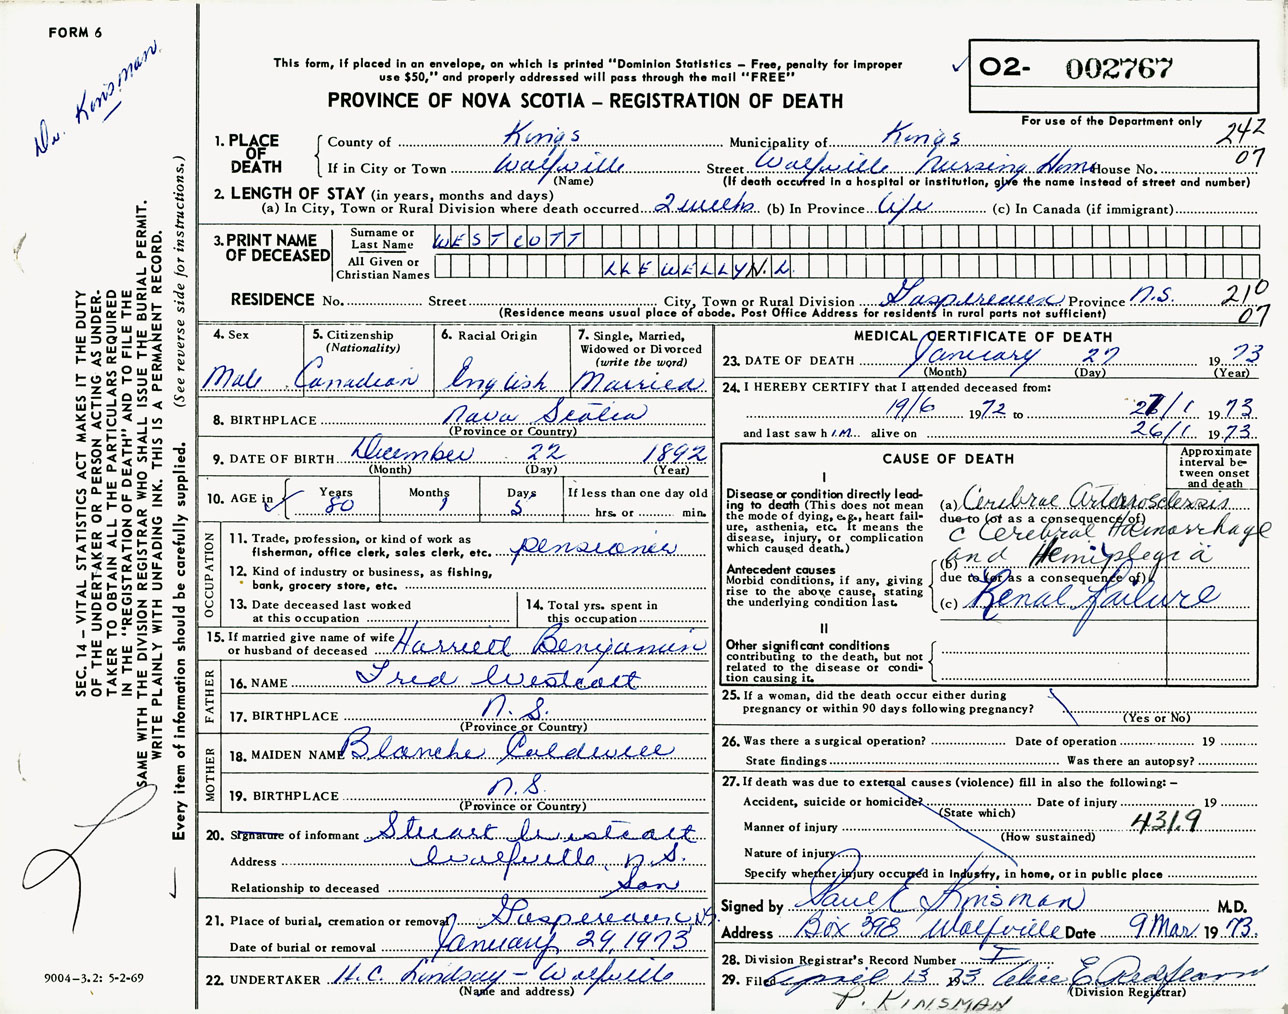 FORM 6
Dr. Kinsman
This form, if placed in an envelope, on which is printed "Dominion Statistics – Free, penalty for improper
use $50," and properly addressed will pass through the mail "FREE"
PROVINCE OF NOVA SCOTIA – REGISTRATION OF DEATH
O2- 002767
For use of the Department only
242
07
1. PLACE OF DEATH
County of Kings Municipality of Kings
If in City or Town Wolfville Street Wolfville Nursing Home House No.
(Name) (If death occurred in a hospital or institution, give the name instead of street and number)
2. LENGTH OF STAY (in years, months and days)
(a) In City, Town or Rural Division where death occurred 2 weeks (b) In Province Life (c) In Canada (if immigrant)
3. PRINT NAME OF DECEASED
Surname or Last Name WESTCOTT
All Given or Christian Names LLEWELLYN. L.
RESIDENCE No. Street City, Town or Rural Division Gaspereaux Province N.S. 210
(Residence means usual place of abode. Post Office Address for residents in rural parts not sufficient) 07
4. Sex Male
5. Citizenship (Nationality) Canadian
6. Racial Origin English
7. Single, Married, Widowed or Divorced (write the word) Married
8. BIRTHPLACE Nova Scotia
(Province or Country)
9. DATE OF BIRTH December 22 1892
(Month) (Day) (Year)
10. AGE in Years 80 Months 1 Days 5 If less than one day old hrs. or min.
OCCUPATION
11. Trade, profession, or kind of work as fisherman, office clerk, sales clerk, etc. pensioner
12. Kind of industry or business, as fishing, bank, grocery store, etc.
13. Date deceased last worked at this occupation
14. Total yrs. spent in this occupation
15. If married give name of wife or husband of deceased Harriett Benjamin
FATHER
16. NAME Fred Westcott
17. BIRTHPLACE N.S.
(Province or Country)
MOTHER
18. MAIDEN NAME Blanche Coldwell
19. BIRTHPLACE N.S.
(Province or Country)
20. Signature of informant Stuart Westcott
Address Wolfville, N.S.
Relationship to deceased Son
21. Place of burial, cremation or removal Gaspereaux, N.S.
Date of burial or removal January 29, 1973
22. UNDERTAKER H.C. Lindsay – Wolfville
(Name and address)
MEDICAL CERTIFICATE OF DEATH
23. DATE OF DEATH January 27 1973
(Month) (Day) (Year)
24. I HEREBY CERTIFY that I attended deceased from:
19/6 1972 to 27/1 1973
and last saw him alive on 26/1 1973
CAUSE OF DEATH
Approximate interval between onset and death
I
Disease or condition directly leading to death (This does not mean the mode of dying, e.g., heart failure, asthenia, etc. It means the disease, injury, or complication which caused death.)
(a) Cerebral Arteriosclerosis
due to (or as a consequence of)
c Cerebral Haemorrhage
(b) and Hemiplegia
Antecedent causes
Morbid conditions, if any, giving rise to the above cause, stating the underlying condition last.
due to (or as a consequence of)
(c) Renal failure
II
Other significant conditions
contributing to the death, but not related to the disease or condition causing it.
25. If a woman, did the death occur either during pregnancy or within 90 days following pregnancy?
(Yes or No)
26. Was there a surgical operation? Date of operation 19
State findings Was there an autopsy?
27. If death was due to external causes (violence) fill in also the following: –
Accident, suicide or homicide? Date of injury 19
(State which)
Manner of injury 431.9
(How sustained)
Nature of injury
Specify whether injury occurred in industry, in home, or in public place
Signed by Paul E Kinsman M.D.
Address Box 398 Wolfville Date 9 Mar. 1973.
28. Division Registrar's Record Number
29. Filed April 13 1973
(Division Registrar)
P. KINSMAN
SEC. 14 – VITAL STATISTICS ACT MAKES IT THE DUTY
OF THE UNDERTAKER OR PERSON ACTING AS UNDER-
TAKER TO OBTAIN ALL THE PARTICULARS REQUIRED
IN THE "REGISTRATION OF DEATH" AND TO FILE THE
SAME WITH THE DIVISION REGISTRAR WHO SHALL ISSUE THE BURIAL PERMIT.
WRITE PLAINLY WITH UNFADING INK. THIS IS A PERMANENT RECORD.
Every item of information should be carefully supplied. (See reverse side for instructions.)
9004–3.2: 5-2-69